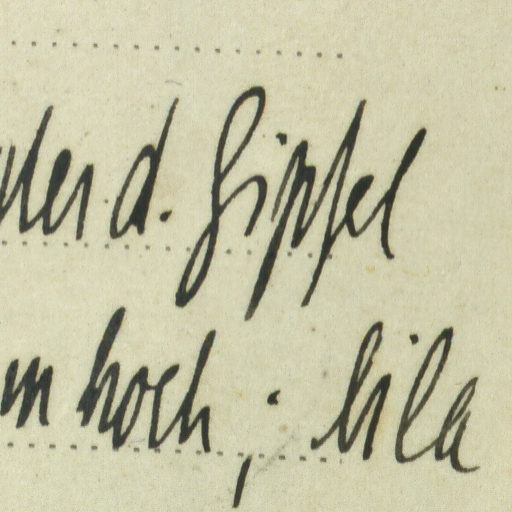 d. Gipfel
m hoch; lila